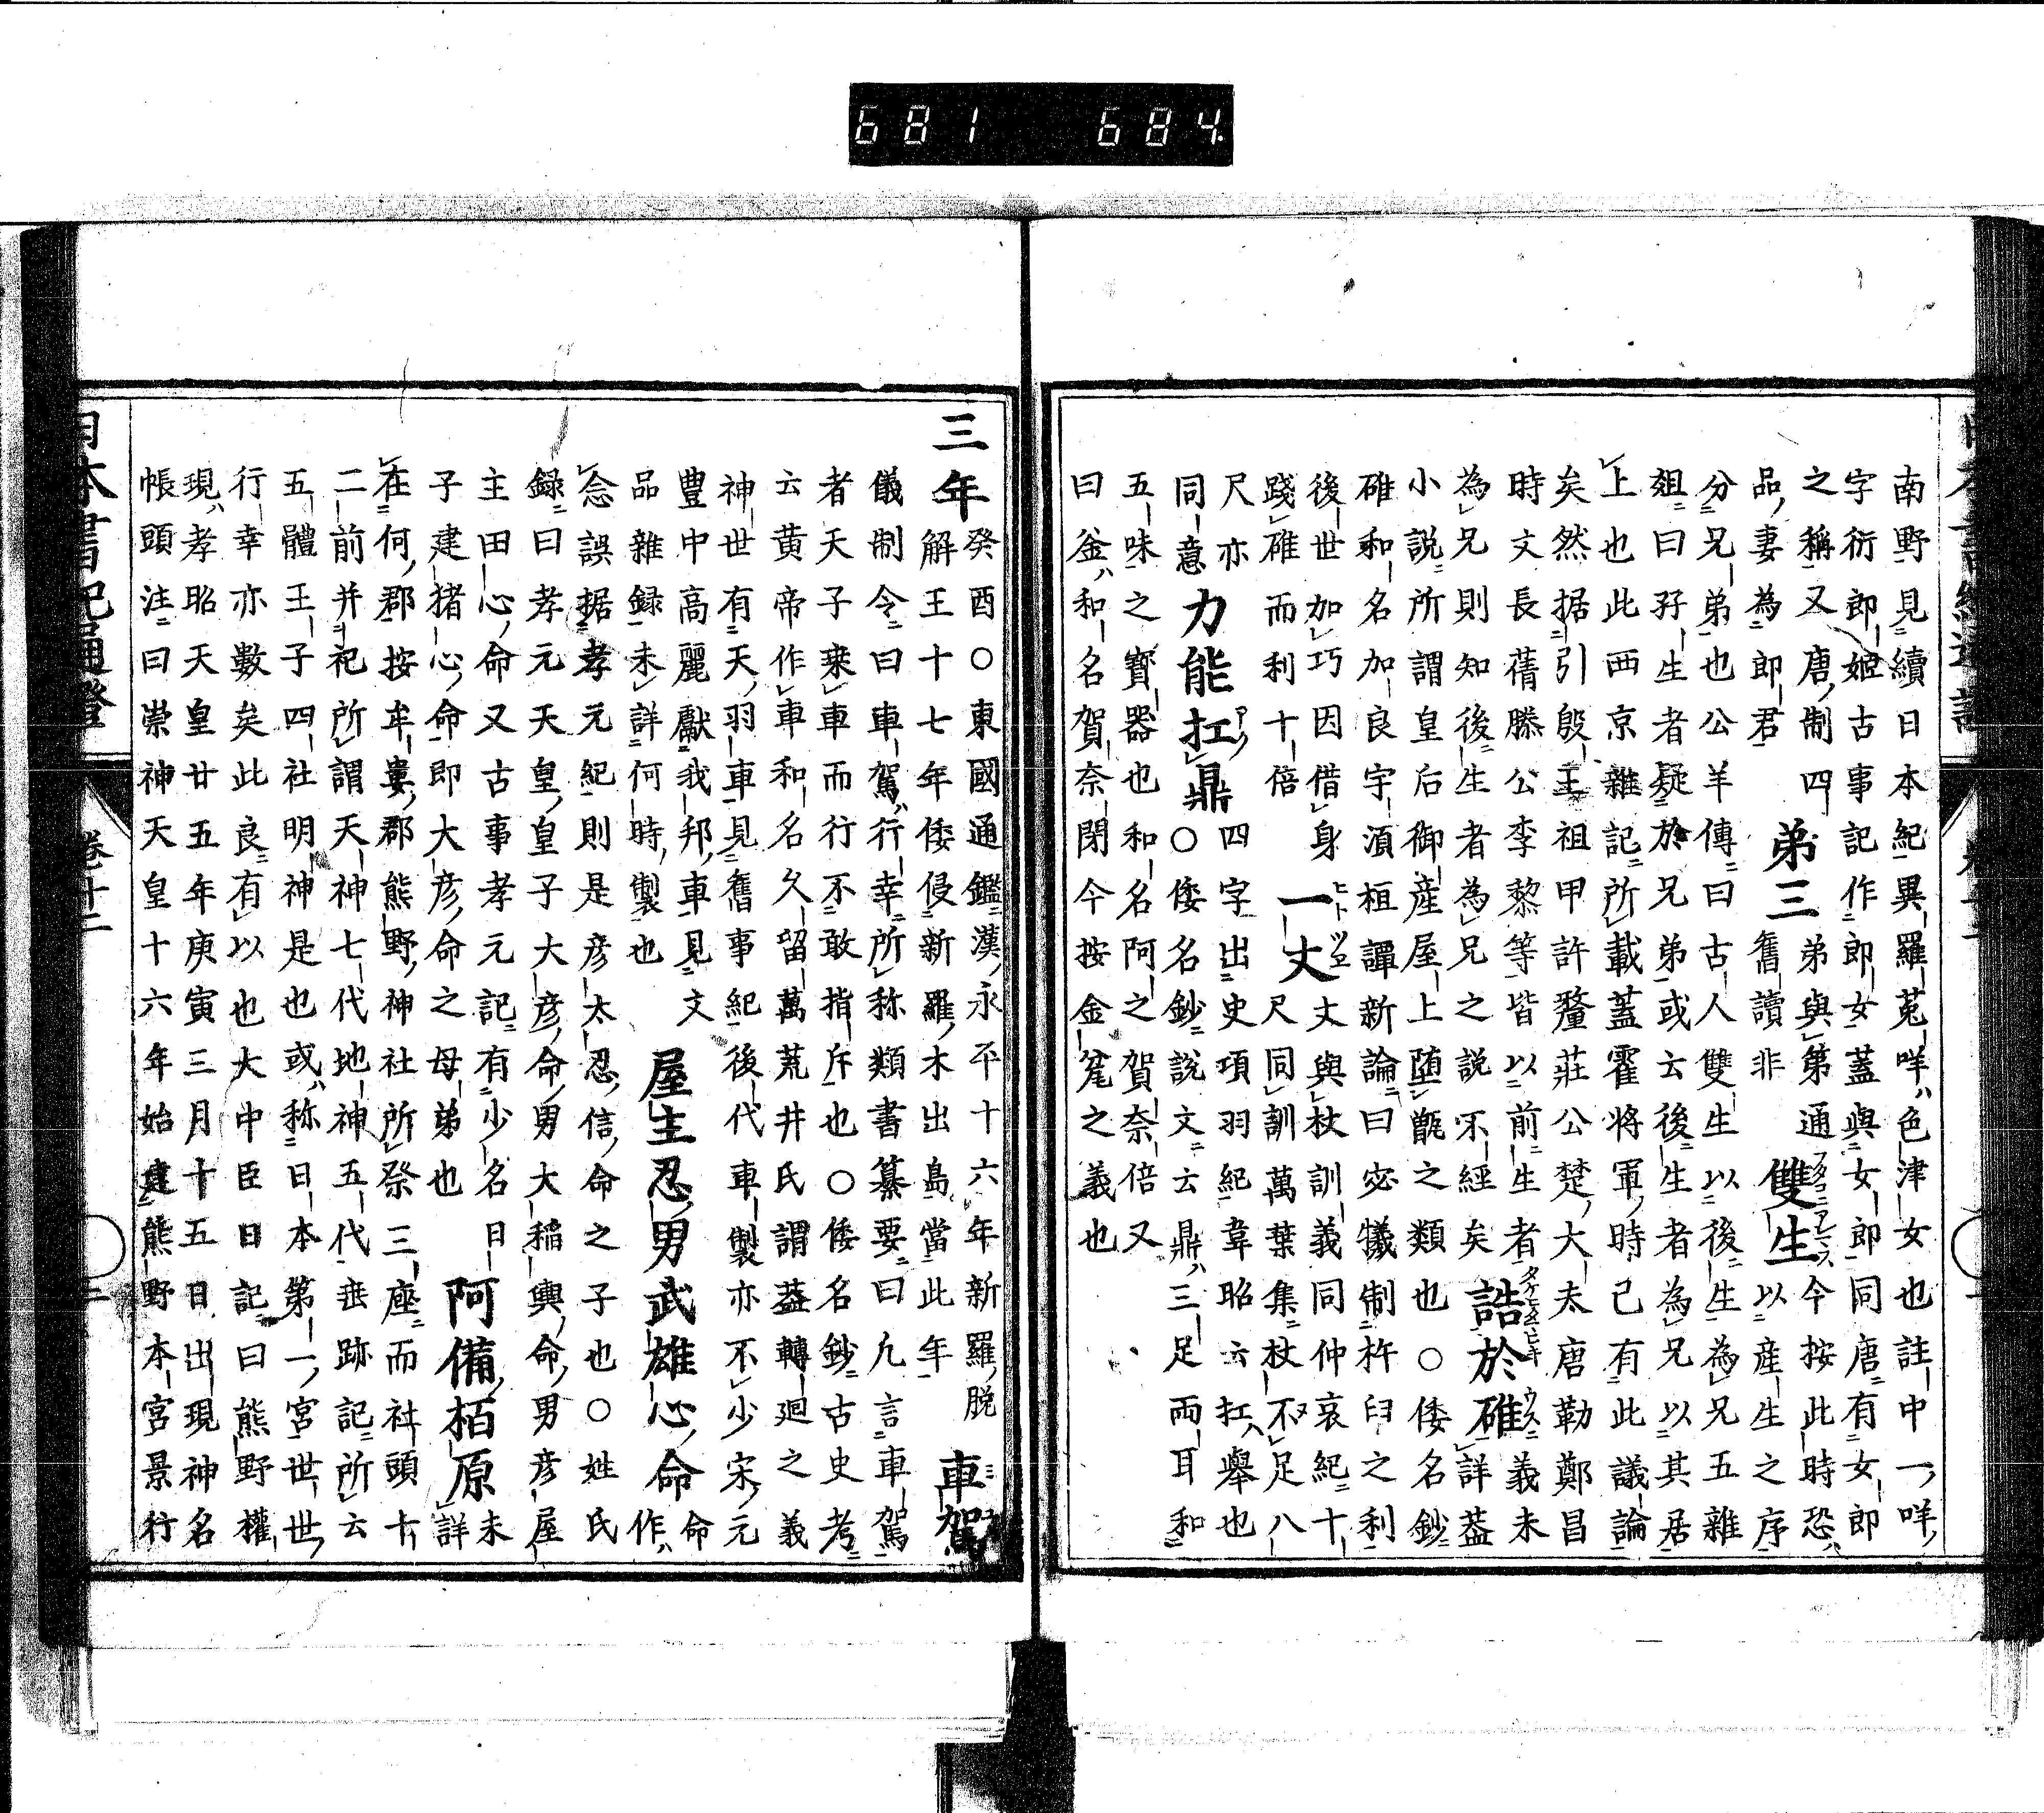 681 684
南野見續日本紀異羅菟咩色津女也註中一咩
字衍郎姬古事記作郎女蓋與女郎同唐有女郎
之稱又唐制四 弟三 弟與第通 雙生 フタコニアレマス 今按此時恐
品妻為郎君 舊讀非 以産生之序
分兄弟也公羊傳曰古人雙生以後生為兄五雜
爼曰孖生者疑於兄弟或云後生者為兄以其居
上也此西京雜記所載蓋霍将軍時已有此議論
矣然据引殷王祖甲許釐莊公楚大夫唐勒鄭昌
時文長蒨滕公李黎等皆以前生者
為兄則知後生者為兄之説不經矣 誥於碓 ウスニ 義未詳蓋
小説所謂皇后御産屋上堕甑之類也○倭名鈔
碓和名加良宇湏桓譚新論曰宓犧制杵臼之利
後世加巧因借身
踐碓而利十倍 一丈 ヒトツヱ 丈與杖訓義同仲哀紀十
尺同訓萬葉集杖不足八
尺亦同意 力能扛鼎 四字出史項羽紀韋昭云扛舉也
○倭名鈔説文云鼎三足両耳和
五味之寳器也和名阿之賀奈倍又
曰釜和名賀奈閇今按金笂之義也
三年 癸酉○東國通鑑漢永平十六年新羅脱
解王十七年倭侵新羅木出島當此年 車駕
儀制令曰車駕行幸所称類書纂要曰凢言車駕
者天子乗車而行不敢指斥也○倭名鈔古史考
云黄帝作車和名久留萬荒井氏謂蓋轉廻之義
神世有天羽車見舊事紀後代車製亦不少宋元
豊中高麗獻我邦車見文
品雜録未詳何時製也 屋主忍男武雄心命 命作
念誤据孝元紀則是彦太忍信命之子也○姓氏
録曰孝元天皇皇子大彦命男大稲輿命男彦屋
主田心命又古事孝元記有少名日
子建猪心命即大彦命之母弟也 阿備栢原 未詳
在何郡按牟婁郡熊野神社所祭三座而社頭十
二前并祀所謂天神七代地神五代垂跡記所云
五體王子四社明神是也或称日本第一宮世世
行幸亦數矣此良有以也大中臣日記曰熊野權
現孝昭天皇廿五年庚寅三月十五日出現神名
帳頭注曰崇神天皇十六年始建熊野本宮景行
日本書紀通證 卷十二